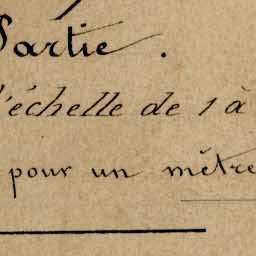 Partie.
l'échelle de 1 à
pour un mètre